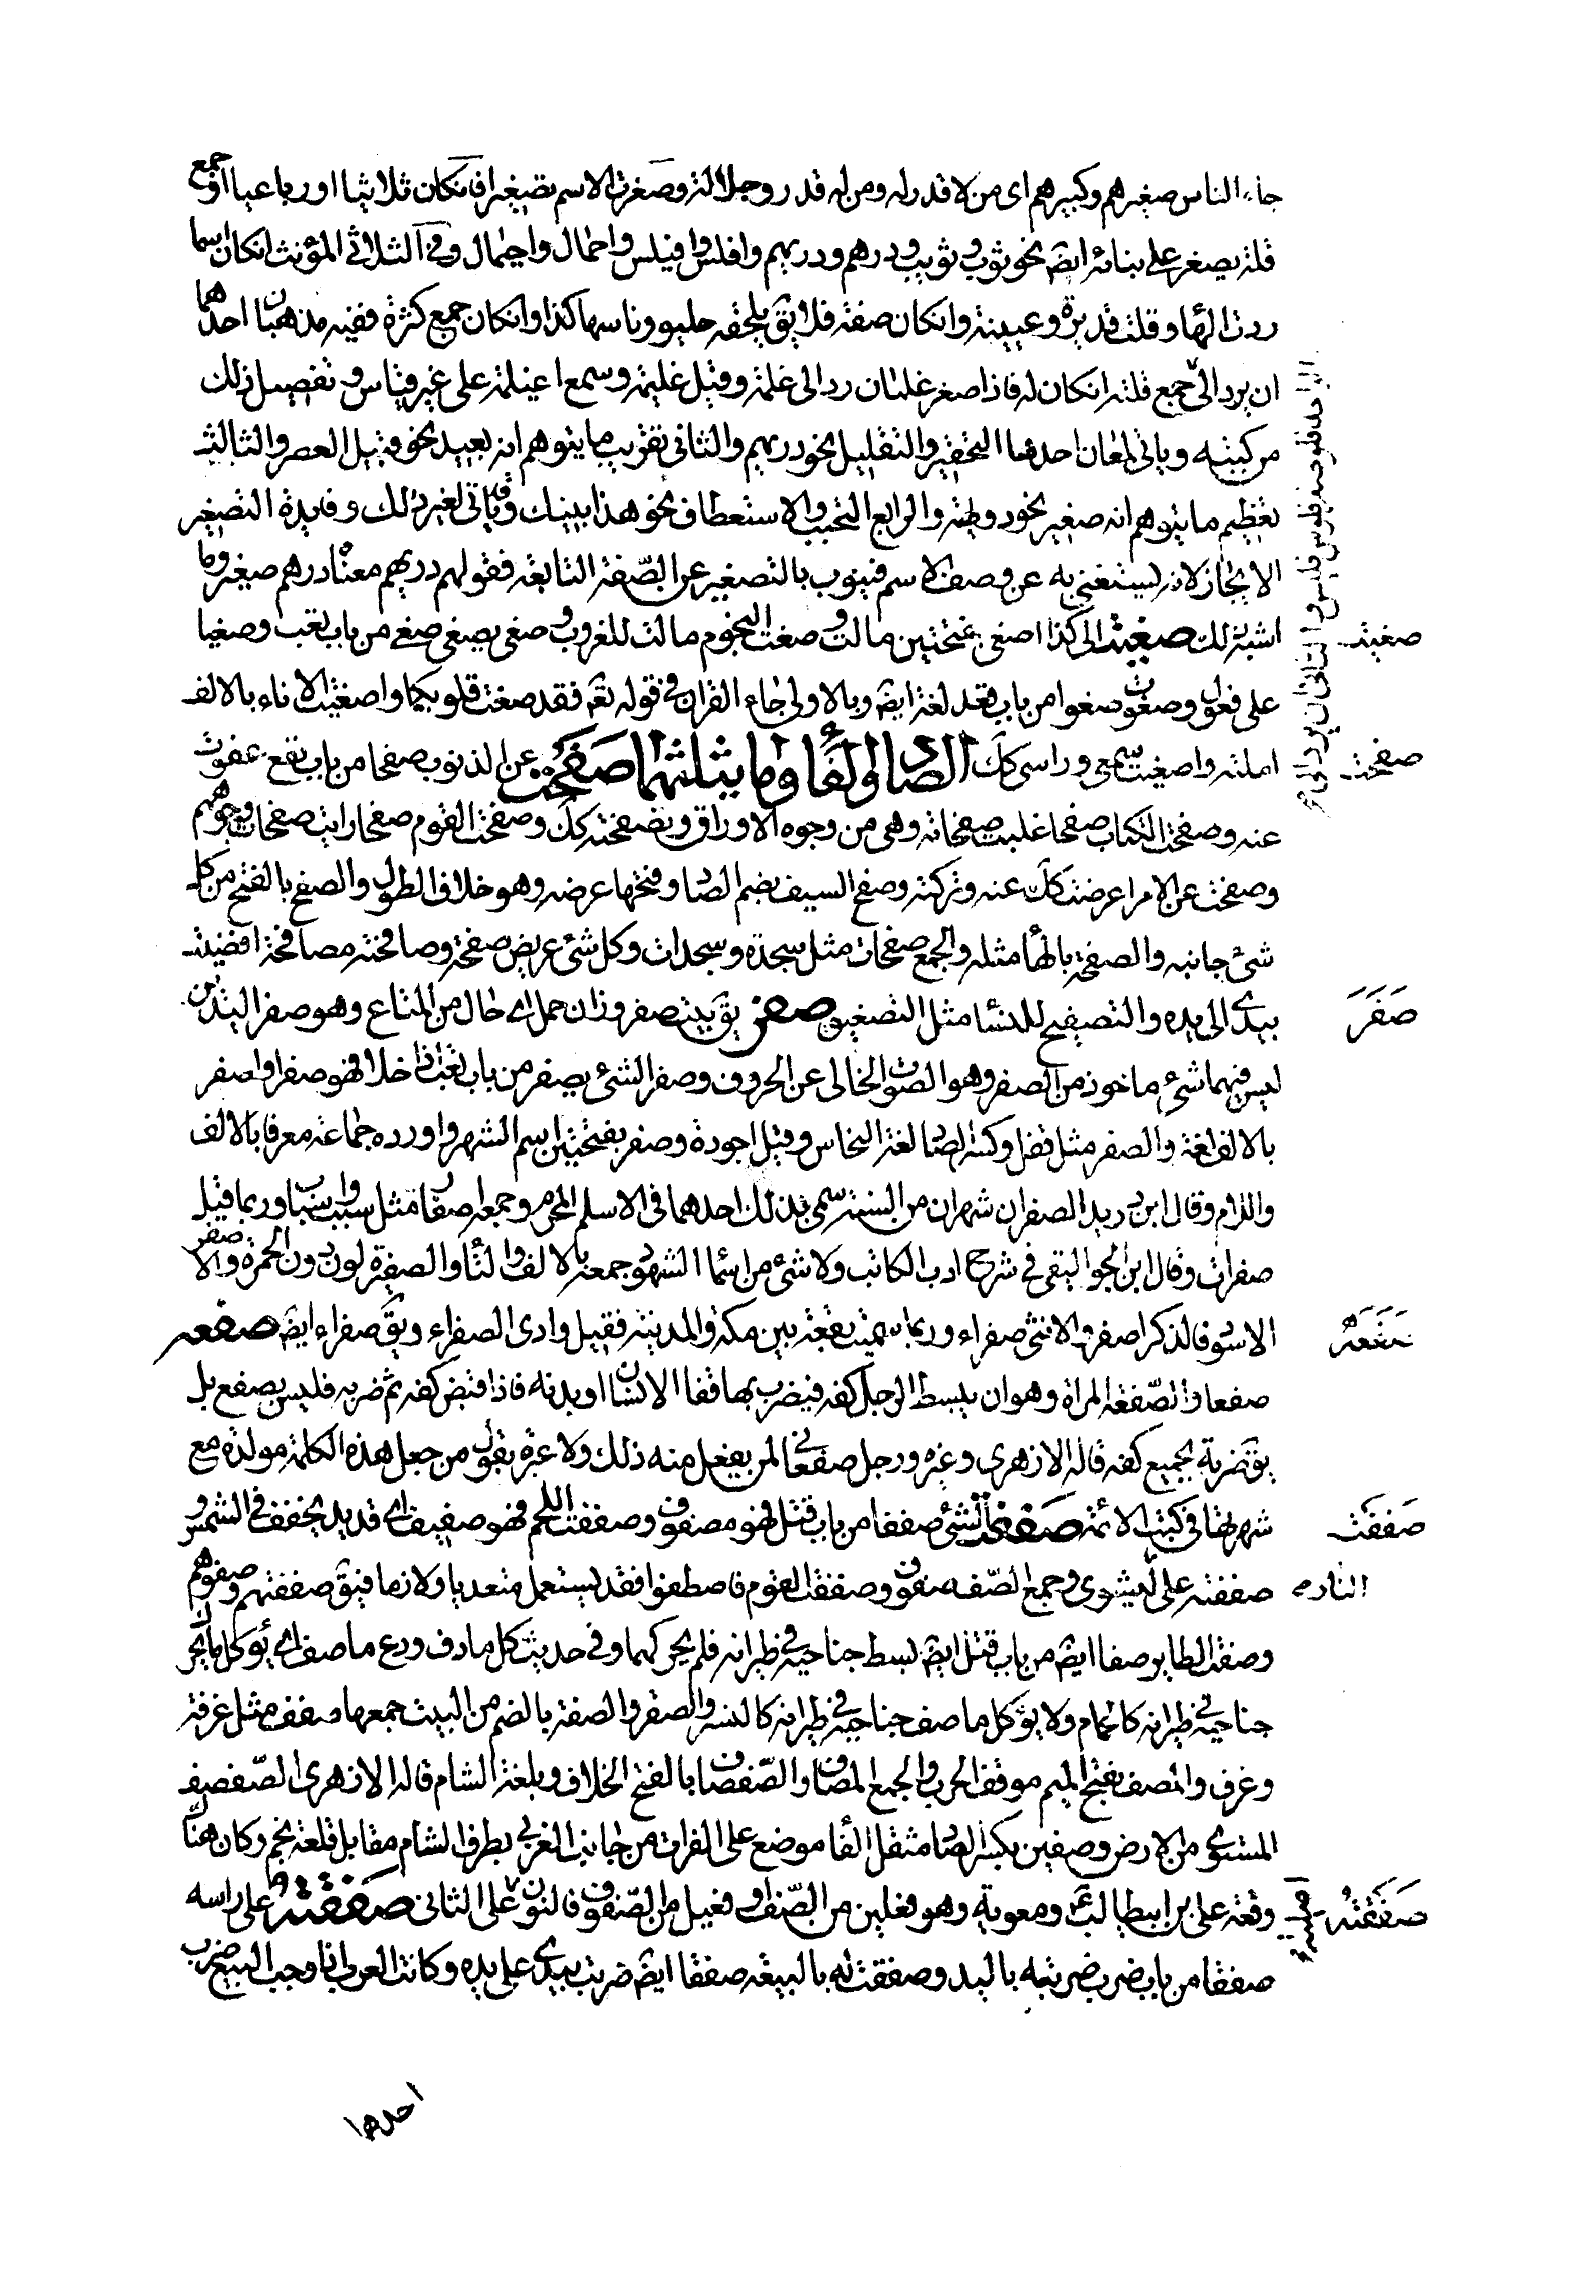 جاء الناس صغيرهم وكبيرهم اى من لا قدر له ومن له قدر وجلالة وصغرت الاسم تصغيرا فان كان ثلاثيا او رباعيا او جمع
قلة يصغر على بنائه ايضا نحو ثوب وثويب ودرهم ودريهم وافلس وافيلس واحمال واحيمال وفى الثلاثى المؤنث انكان اسما
ردت الهاء وقلت قديرة وعيينة وانكان صفة فلا يق ملحفه خليق وناسها كذا وانكان جمع كثرة ففيه مذهبان احدهما
ان يرد الى جمع قلته انكان له فاذا صغر غلمان رد الى غلمة وقيل غليمة وسمع اغيلمة على غير قياس وتفصيل ذلك
من كتبه وياتى لمعان احدها التحقير والتقليل نحو دريهم والثانى تقريب ما يتوهم انه بعيد نحو قبيل العصر والثالث
تعظيم ما يتوهم انه صغير نحو دويهية والرابع التحبب والاستعطاف نحو هذا بنيك وقد ياتى لغير ذلك وفايدة التصغير
الايجاز لانه يستغنى به عن وصف الاسم فينوب بالتصغير عن الصفة التابعة فقولهم دريهم معناه درهم صغير وما
اشبه ذلك صغيت الى كذا اصغى بفتحتين مالت وصغت النجوم مالت للغروب وصغى يصغى صغى من باب تعب وصغيا
على فعول وصغوت صغوا من باب قعد لغة ايضا وبالاولى جاء القران فى قوله تعم فقد صغت قلوبكما واصغيت الاناء بالالف
املته واصغيت سمعى وراسى كك الصاد والفاء وما يثلثهما صفحت عن الذنوب صفحا من باب نفع عفوت
عنه وصفحت الكتاب صفحا قلبت صفحاته وهى من وجوه الاوراق وتصفحته كك وصفحت القوم صفحا رايت صفحات وجوههم
وصفحت عن الامر اعرضت كك عنه وتركته وصفح السيف بضم الصاد وفتحها عرضه وهو خلاف الطول والصفح بالفتح من كل
شئ جانبه والصفحة بالهاء مثله والجمع صفحات مثل سجدة وسجدات وكل شئ عريض صفحة وصافحته مصافحة افضيت
بيدى الى يده والتصفيح للنساء مثل التصفيق صفر يق بيت صفر وزان حمل اى خال من المتاع وهو صفر اليدين
ليس فيهما شئ ماخوذ من الصفر وهو الصوت الخالى عن الحروف وصفر الشئ يصفر من باب تعب اذا خلا فهو صفر واصفر
بالالف لغة والصفر مثل قفل وكسر الصاد لغة النحاس وقيل اجوده وصفر بفتحتين اسم الشهر واورده جماعة معرفا بالالف
واللام وقال ابن دريد الصفران شهران من السنة سمى بذلك احدهما فى الاسلام المحرم وجمعه اصفار مثل سبب واسباب وربما قيل
صفرات وقال ابن الجواليقى فى شرح ادب الكاتب ولا شئ من اسماء الشهور جمعته بالالف والتاء والصفرة لون دون الحمرة والاصفر
الاسود فالذكر اصفر والانثى صفراء وربما سميت بقعة بين مكة والمدينة فقيل وادى الصفراء ويق صفراء ايضا صفعه
صفعا والصفعة المراة وهو ان يبسط الرجل كفه فيضرب بها قفا الانسان او بدنه فاذا قبض كفه ثم ضربه فليس بصفع بل
يق ضربه بجميع كفه قاله الازهرى وغيره ورجل صفعانى لمن يفعل منه ذلك ولا عبرة بقول من جعل هذه الكلمة مولدة مع
شهرتها فى كتب الائمة صففت الشئ صففا من باب قتل فهو مصفوف وصففت اللحم فهو صفيف اى قديد يجفف فى الشمس و
صففته على ليشوى وجمع الصف صفوف وصففت القوم فاصطفوا فقد يستعمل متعديا ولازما فيق صففتهم وصفوهم
وصف الطاير صفا ايضا من باب قتل ايضا بسط جناحيه فى طيرانه فلم يحركهما وفى حديث كل ما دف ودع ما صف اى يؤكل ما يحرك
جناحيه فى طيرانه كالحمام ولا يؤكل ما صف جناحيه فى طيرانه كالنسر والصقر والصفة بالضم من البيت جمعها صفف مثل غرفة
وغرف والمصف بفتح الميم موقف الحرب والجمع المصاف والصفصاف بالفتح الخلاف وبلغة الشام قاله الازهرى الصفصف
المستوى من الارض وصفين بكسر الصاد مثقل الفاء موضع على الفرات من جانب الغربى بطرف الشام مقابل قلعة نجم وكان هناك
وقعة على بن ابيطالب ومعوية وهو فعلين من الصف او فعيل من الصفوف فالنون على الثانى صفقته على راسه
صفقا من باب ضرب ضربته باليد وصفقت له بالبيعة صفقا ايضا ضربت بيدى على يده وكانت العرب اذا وجب البيع ضرب
احدهما
صغيت
صفحت
صَفَرَ
صفعه
صففت
النارم
صفقته